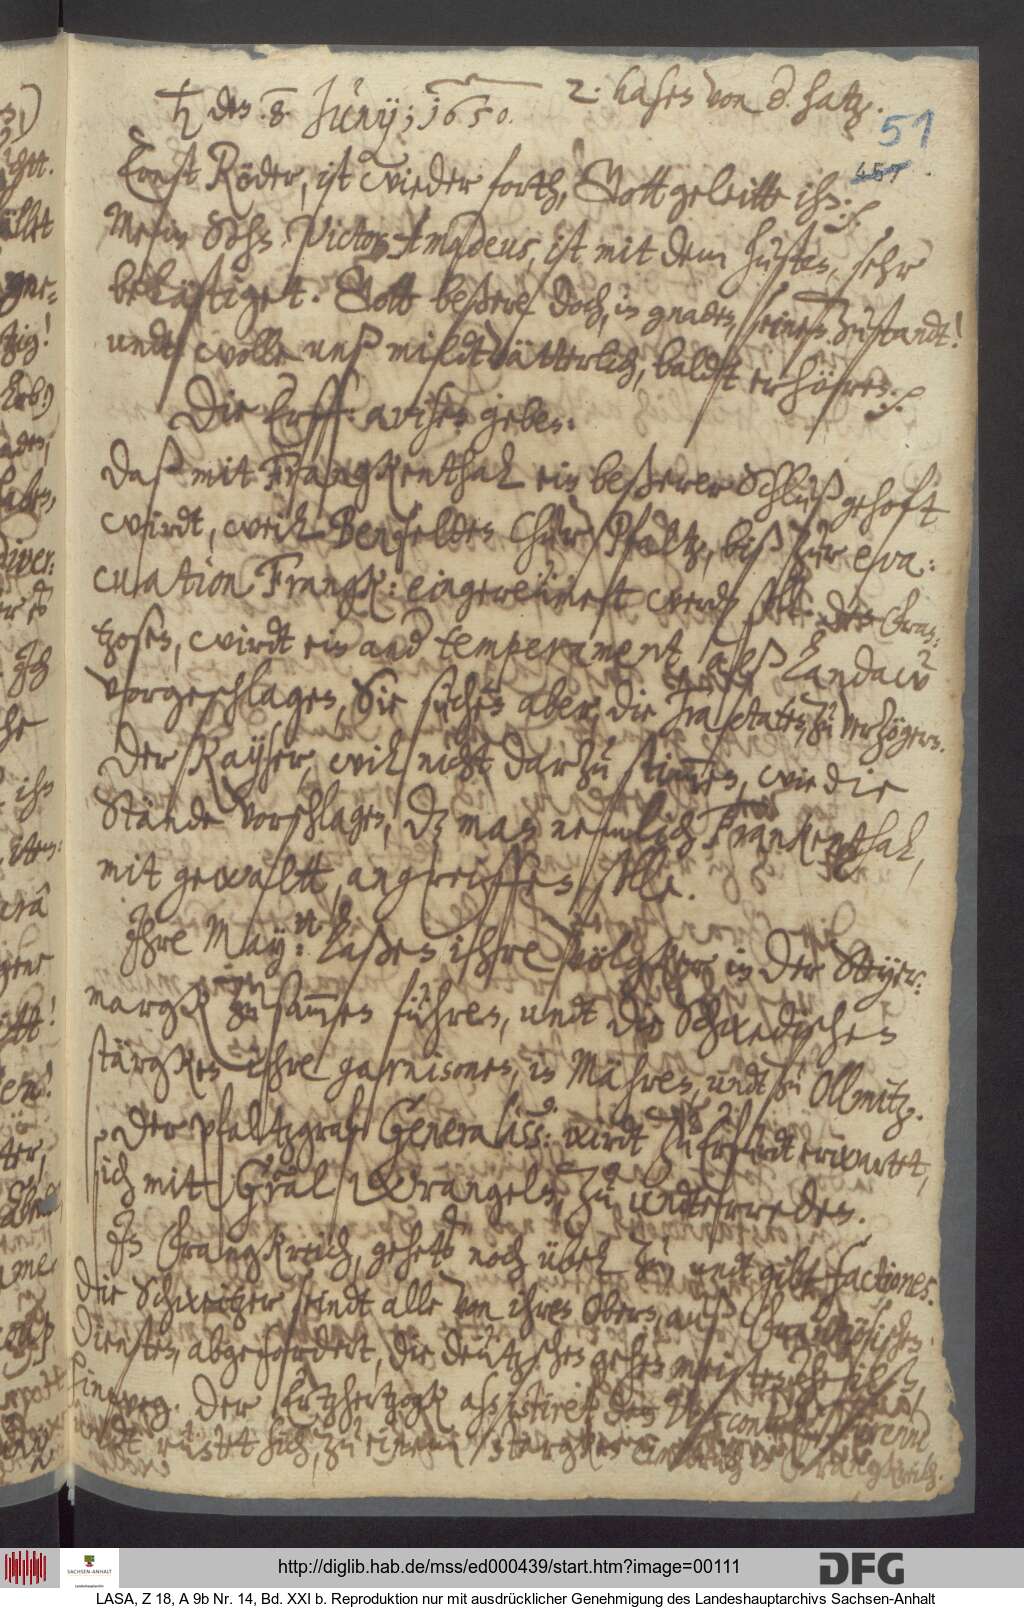 ♄ den .8. Juny; 1650.
2. hasen von d. hatz.
51
457
Ernst Röder, ist wieder forth, Gott geleitte ihn:/:
Mein Sohn Victor Amadeus, ist mit dem husten, sehr
belästiget. Gott beßere doch, in gnaden, seinen zustandt!
undt wolle unß mildtvätterlich, baldt erhören:/:
Die Erff: avisen geben:
daß mit Frangkenthal ein beßerer Schluß gehoft
wirdt, weil Benfelden Chur Pfaltz, biß zur eva:
cuation Frangk: eingereümet werden soll. den Fran:
tzosen, wirdt ein and temperament, alß Landaw
vorgeschlagen, Sie suchen aber, die Tractaten, zu verzögern.
Der Kayser, wil nicht darzu stimmen, wie die
Stände vorschlagen, dz man nemlich Frankenthal,
mit gewaltt, angreiffen solle.
Ihre May: laßen ihre völgker in der Steyer:
margk zusammen führen, undt die Schwedischen
stärgken ihre garnisonen, in Mähren, undt zu Ollmitz.
Der Pfaltzgraf Generaliss: wirdt zu Erfurdt erwartet,
sich mit Gral Wrangeln, zu undterreden.
In Frangkreich, gehets noch übel zu, undt gibt factiones.
die Schweitzer seindt alle von ihren Obern, auß Frantzösischen
diensten, abgefordert, die deützschen gehen meistentheilß,
hinweg. Der Ertzhertzogk assistiret den Vicomte Turenne
undt rüstet sich, zu einem stargken einbruch in Frangkreich.
http://diglib.hab.de/mss/ed000439/start.htm?image=00111
SACHSEN-ANHALT
Landeshauptarchiv
DFG
LASA, Z 18, A 9b Nr. 14, Bd. XXI b. Reproduktion nur mit ausdrücklicher Genehmigung des Landeshauptarchivs Sachsen-Anhalt